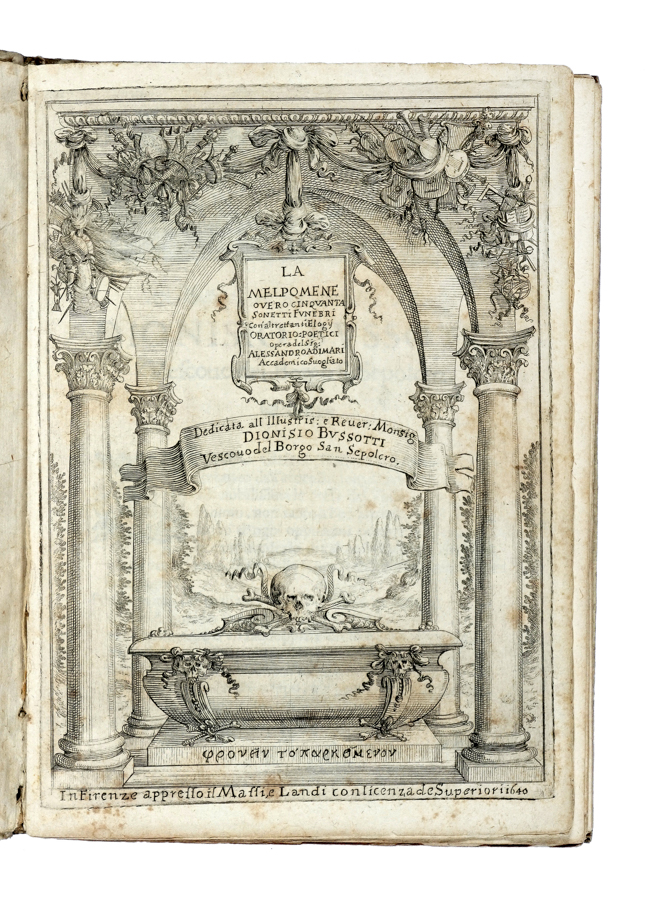 LA
MELPOMENE
OVERO CINQVANTA
SONETTI FVNEBRI
Con altrettanti Elogij
ORATORIO=POETICI
opera del Sig:
ALESSANDRO ADIMARI
Accademico Suogliato
Dedicata all Illustris: e Reuer: Monsig
DIONISIO BVSSOTTI
Vescouo del Borgo San Sepolcro.
In Firenze appresso il Massi, e Landi con licenza de Superiori 1640